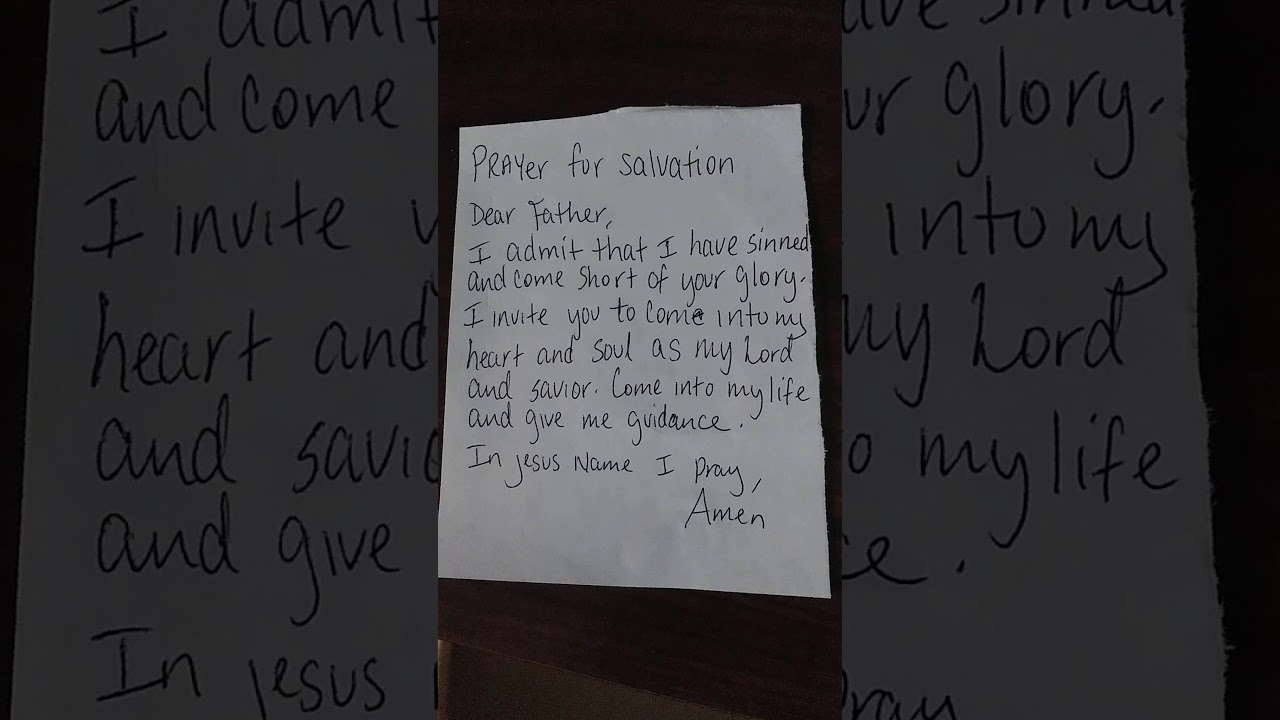 PRAYer for Salvation
Dear Father,
I admit that I have sinned
and come short of your glory.
I invite you to come into my
heart and soul as my Lord
and savior. Come into my life
and give me guidance.
In Jesus Name I pray,
Amen